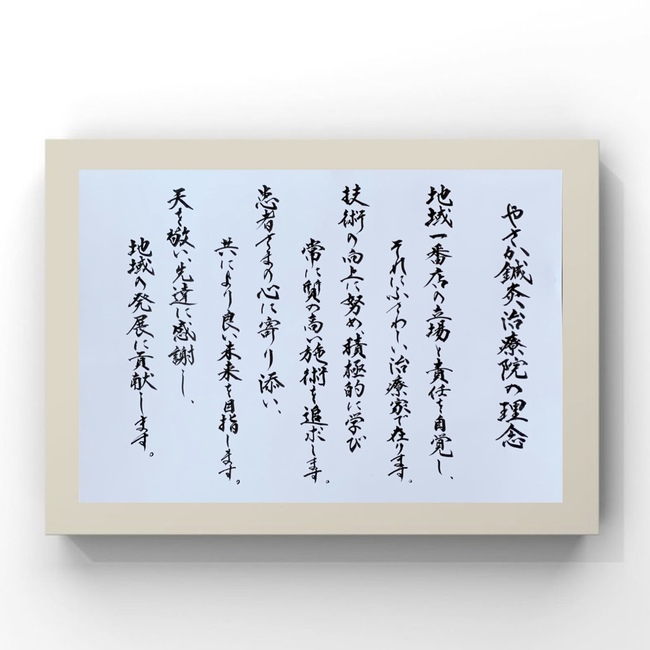 やさか鍼灸治療院の理念
地域一番店の立場と責任を自覚し、
それにふさわしい治療家で在ります。
技術の向上に努め積極的に学び
常に質の高い施術を追求します。
患者さまの心に寄り添い、
共により良い未来を目指します。
天を敬い、先達に感謝し、
地域の発展に貢献します。